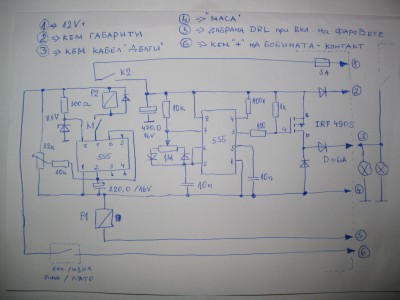 ① => 12V+
② => КЪМ ГАБАРИТИ
③ => КЪМ КАБЕЛ "ДЪЛГИ"
④ => "МАСА"
⑤ => ЗАБРАНА DRL ПРИ ВКЛ. НА ФАРОВЕТЕ
⑥ => КЪМ "+" НА БОБИНАТА - КОНТАКТ
K2
5A
①
P2
300Ω
K1
470,0
16V
10k
100k
1k
②
8 7 6 5
555
1 2 3 4
555
100
IRF4905
③
22k
10k
1M
D=6A
220,0/16V
10n
10n
④
P1
⑤
⑥
ЗИМА/ЛЯТО